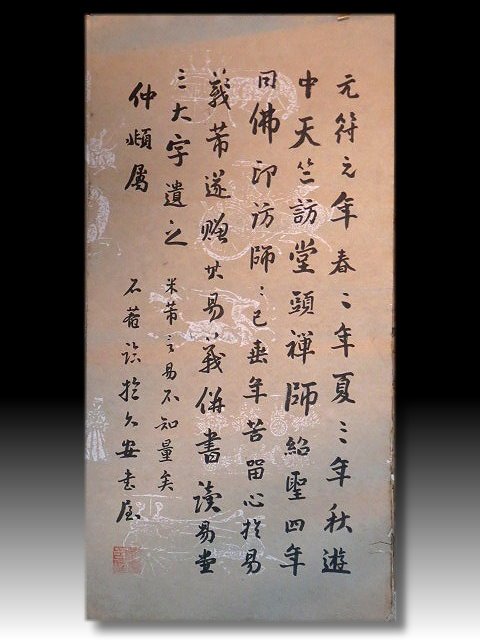 元符元年春二年夏三年秋遊
中天竺訪堂頭禪師紹聖四年
同佛印訪師〻已垂年苦留心於易
義芾遂贈其易義併書讀易堂
三大字遺之 米芾言易不知量矣
仲 屬 石 於久安書屋